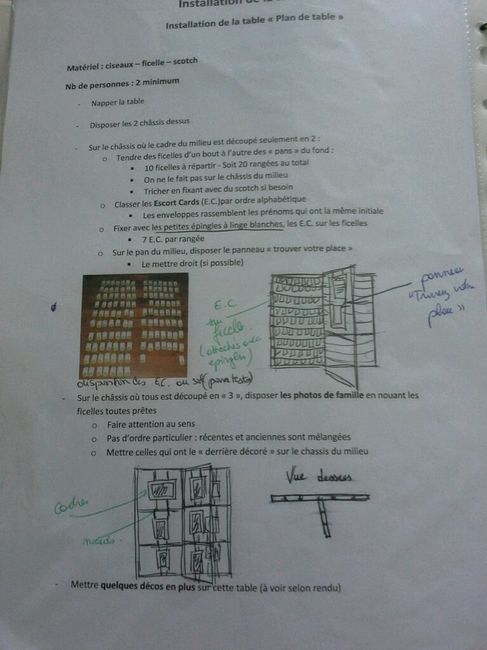 Installation de
Installation de la table « Plan de table »
Matériel : ciseaux – ficelle – scotch
Nb de personnes : 2 minimum
- Napper la table
- Disposer les 2 châssis dessus
- Sur le châssis où le cadre du milieu est découpé seulement en 2 :
o Tendre des ficelles d'un bout à l'autre des « pans » du fond :
▪ 10 ficelles à répartir - Soit 20 rangées au total
▪ On ne le fait pas sur le châssis du milieu
▪ Tricher en fixant avec du scotch si besoin
o Classer les Escort Cards (E.C.)par ordre alphabétique
▪ Les enveloppes rassemblent les prénoms qui ont la même initiale
o Fixer avec les petites épingles à linge blanches, les E.C. sur les ficelles
▪ 7 E.C. par rangée
o Sur le pan du milieu, disposer le panneau « trouver votre place »
▪ Le mettre droit (si possible)
E.C.
sur
ficelle
(attachés avec
épingles)
panneau
"Trouvez votre
place »
disposition des E.C. au sol (
- Sur le châssis où tous est découpé en « 3 », disposer les photos de famille en nouant les
ficelles toutes prêtes
o Faire attention au sens
o Pas d'ordre particulier : récentes et anciennes sont mélangées
o Mettre celles qui ont le « derrière décoré » sur le chassis du milieu
Cadres
nœuds
Vue dessus
- Mettre quelques décos en plus sur cette table (à voir selon rendu)